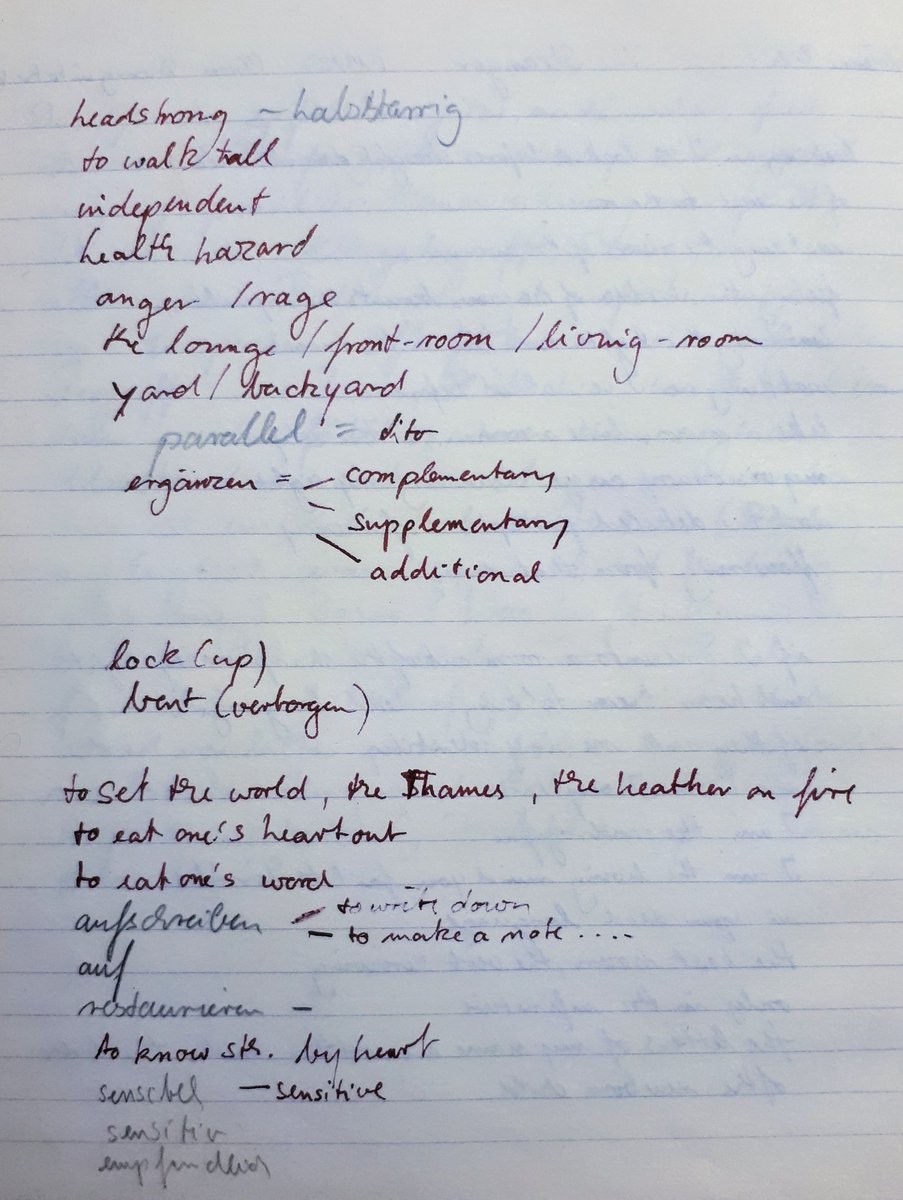 headstrong – halsstarrig
to walk tall
independent
health hazard
anger / rage
the lounge / front-room / living-room
yard / backyard
parallel = dito
ergänzen = – complementary
– supplementary
– additional
lock (up)
bent (verborgen)
to set the world, the Thames, the heather on fire
to eat one's heart out
to eat one's word
aufschreiben – to write down
– to make a note ....
auf
restaurieren –
to know sth. by heart
sensibel – sensitive
sensitiv
empfindlich